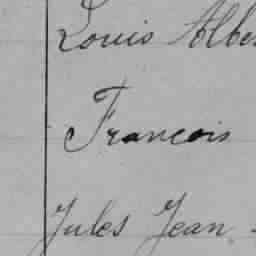 Louis Albe
Francois
Jules Jean